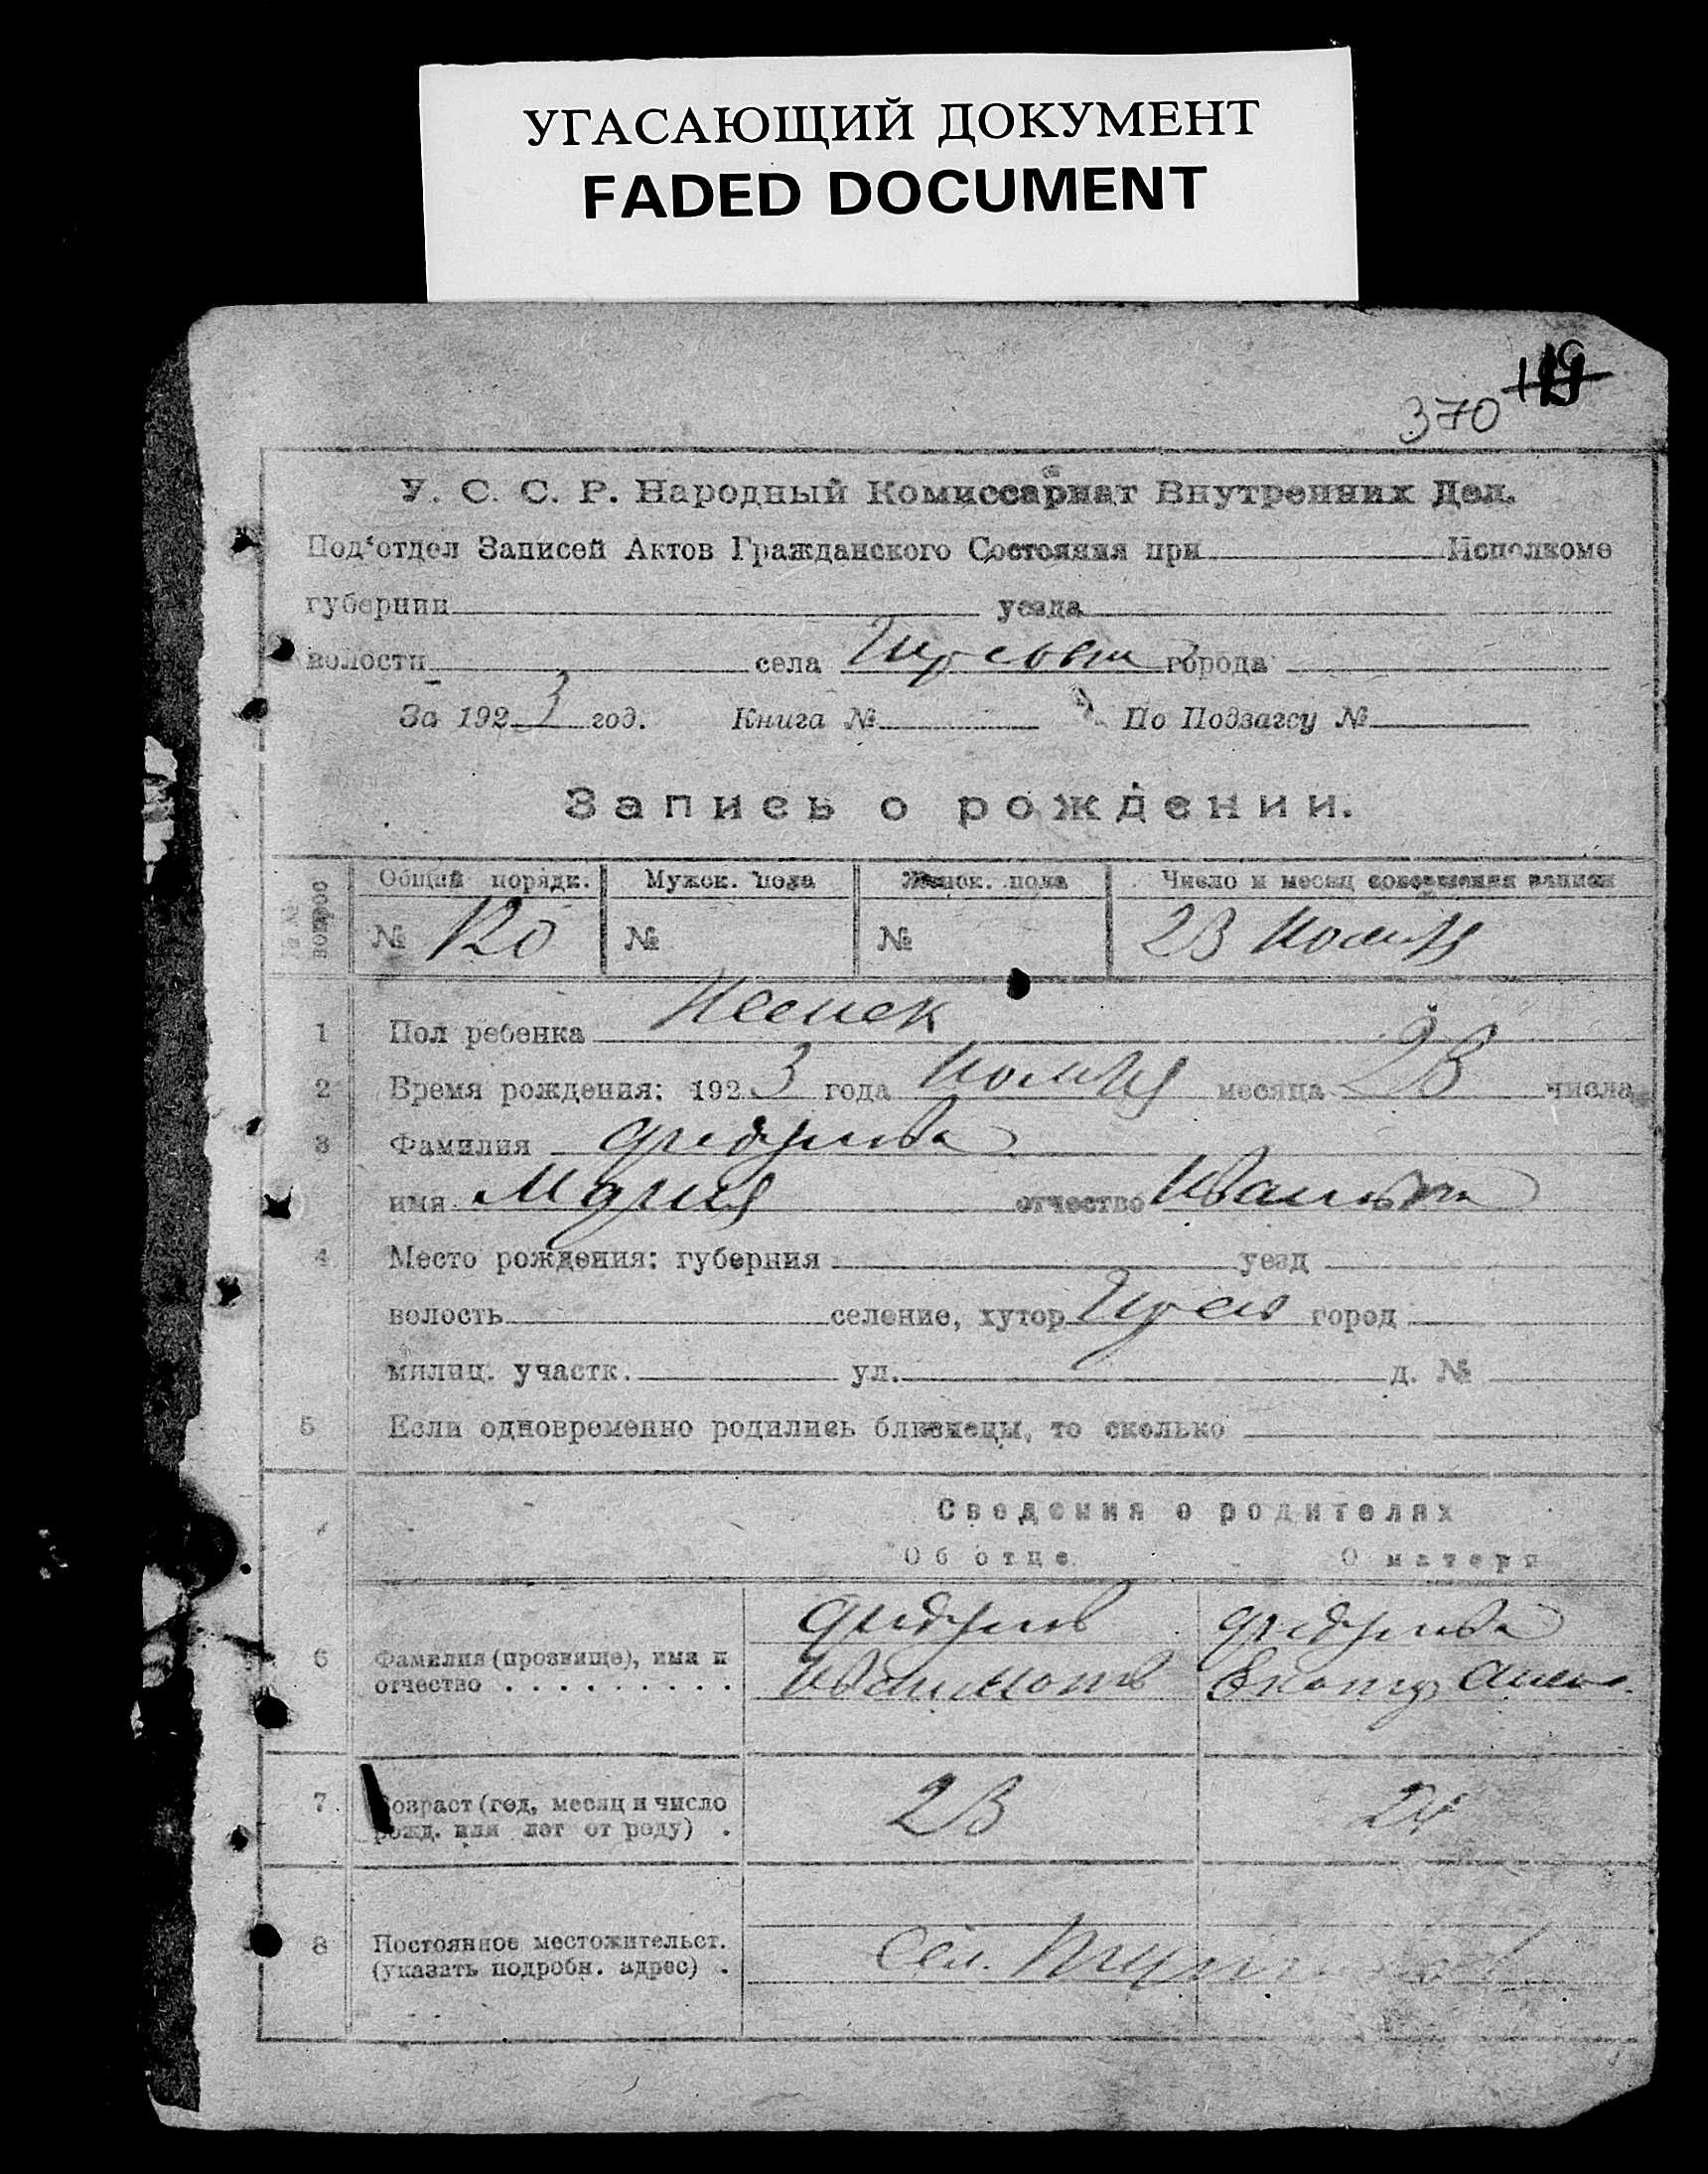 УГАСАЮЩИЙ ДОКУМЕНТ
FADED DOCUMENT
119
370
У. С. С. Р. Народный Комиссариат Внутренних Дел.
Под‘отдел Записей Актов Гражданского Состояния при Исполкоме
губернии уезда
волости села города
За 1923 год. Книга № По Подзагсу №
Запись о рождении.
№№ вопрос Общий порядк. Мужск. пола Женск. пола Число и месяц совершения записи
№ 120 № № 23 Ноября
1 Пол ребенка Женск
2 Время рождения: 1923 года Ноября месяца 23 числа
3 Фамилия
имя Мария отчество Ивановна
4 Место рождения: губерния уезд
волость селение, хутор город
милиц. участк. ул. д. №
5 Если одновременно родились близнецы, то сколько
Сведения о родителях
Об отце О матери
6 Фамилия (прозвище), имя и
отчество . . . . . . . . .
7 Возраст (год, месяц и число
рожд. или лет от роду) . 23 24
8 Постоянное местожительст.
(указать подробн. адрес) . Сел.